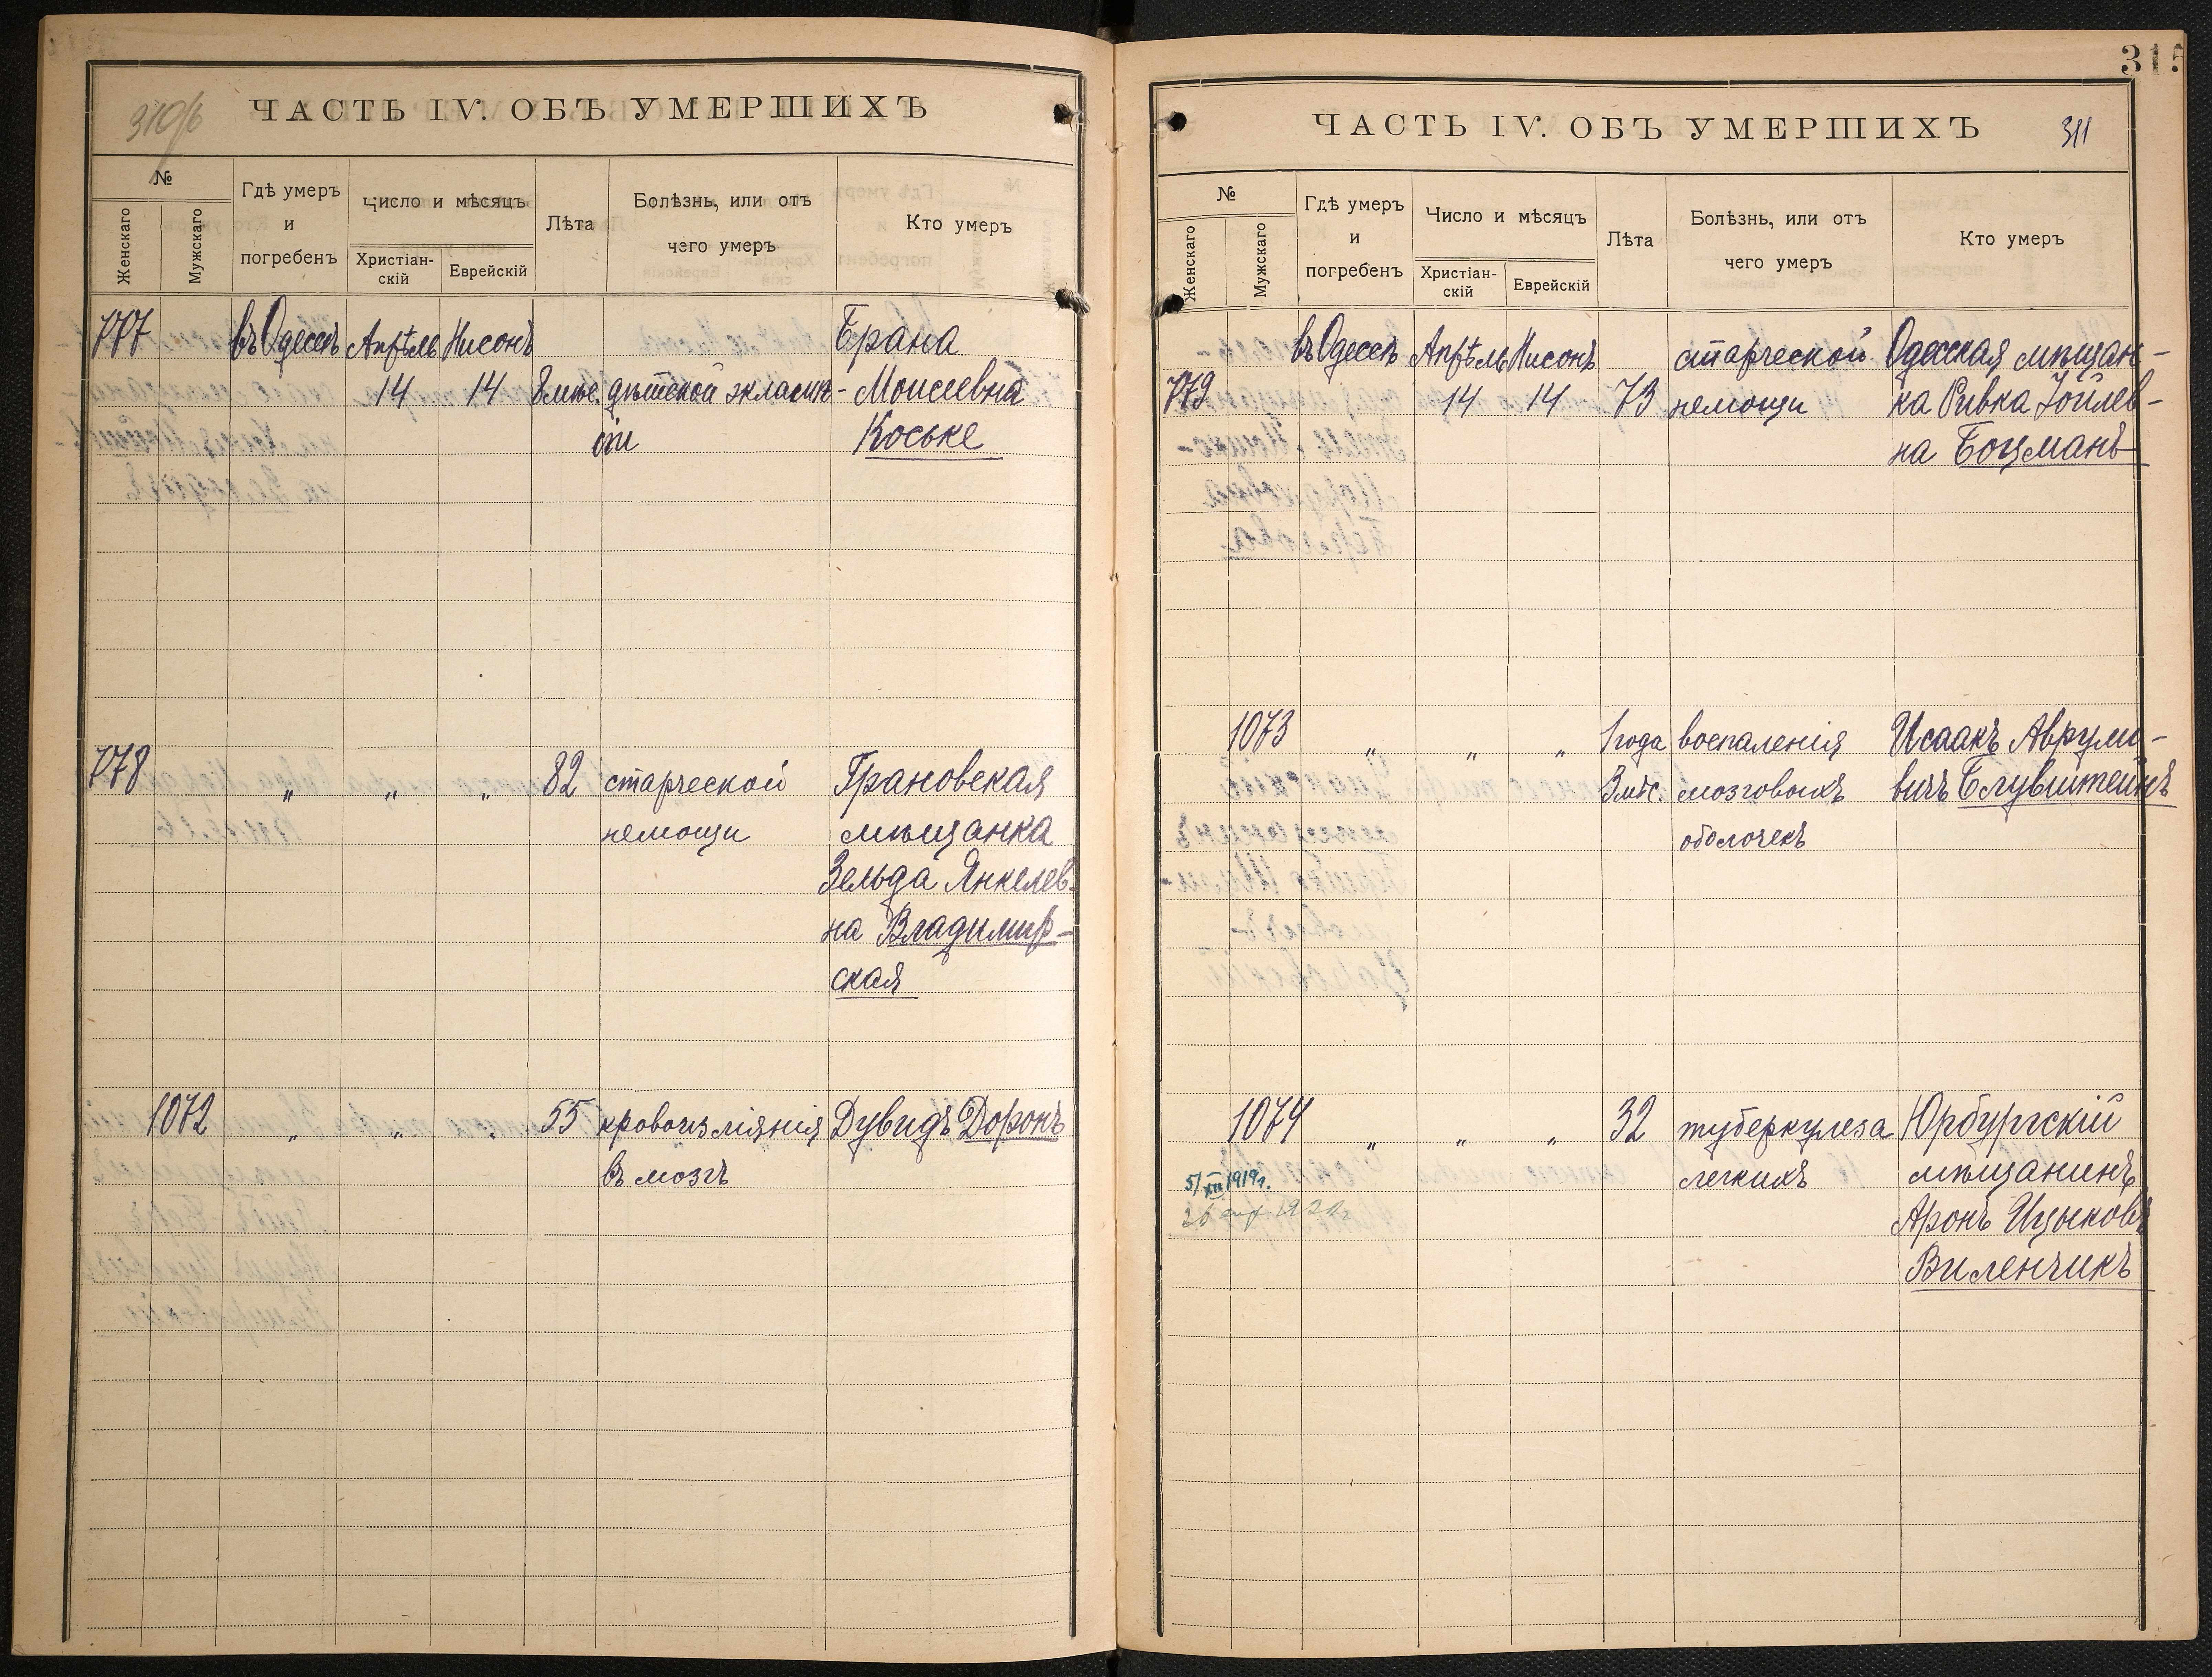 310/б
ЧАСТЬ IV. ОБЪ УМЕРШИХЪ
№
Женскаго
Мужскаго
Гдѣ умеръ
и
погребенъ
Число и мѣсяцъ
Христіан-
скій
Еврейскій
Лѣта
Болѣзнь, или отъ
чего умеръ
Кто умеръ
777 въ Одессѣ Апрѣль Нисонъ Брана
14 14 8 мѣс. дѣтской эклампс- Моисеевна
іи Коське
778 " " " 82 старческой Грановская
немощи мѣщанка
Зельда Янкелев-
на Владимир-
ская
1072 " " " 55 кровоизліянія Дувидъ Доронъ
въ мозгъ
315
ЧАСТЬ IV. ОБЪ УМЕРШИХЪ 311
№
Женскаго
Мужскаго
Гдѣ умеръ
и
погребенъ
Число и мѣсяцъ
Христіан-
скій
Еврейскій
Лѣта
Болѣзнь, или отъ
чего умеръ
Кто умеръ
въ Одессѣ Апрѣль Нисонъ старческой Одесская мѣщан-
779 14 14 73 немощи ка Ривка Іойлев-
на Боцманъ
1073 " " " 1 года воспаленія Исаакъ Аврумо-
3 мѣс. мозговыхъ вичъ Блувштейнъ
оболочекъ
1074 " " " 32 туберкулеза Юрбургскій
5/XII 1919г. легкихъ мѣщанинъ
Аронъ Ицыковъ
Виленчикъ